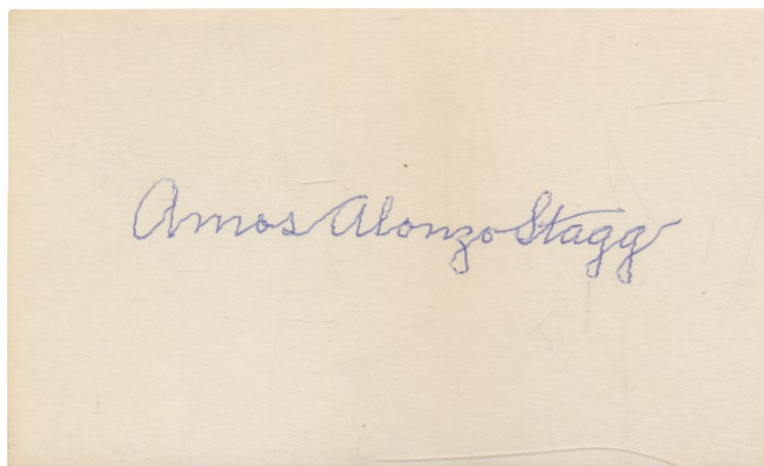 Amos Alonzo Stagg